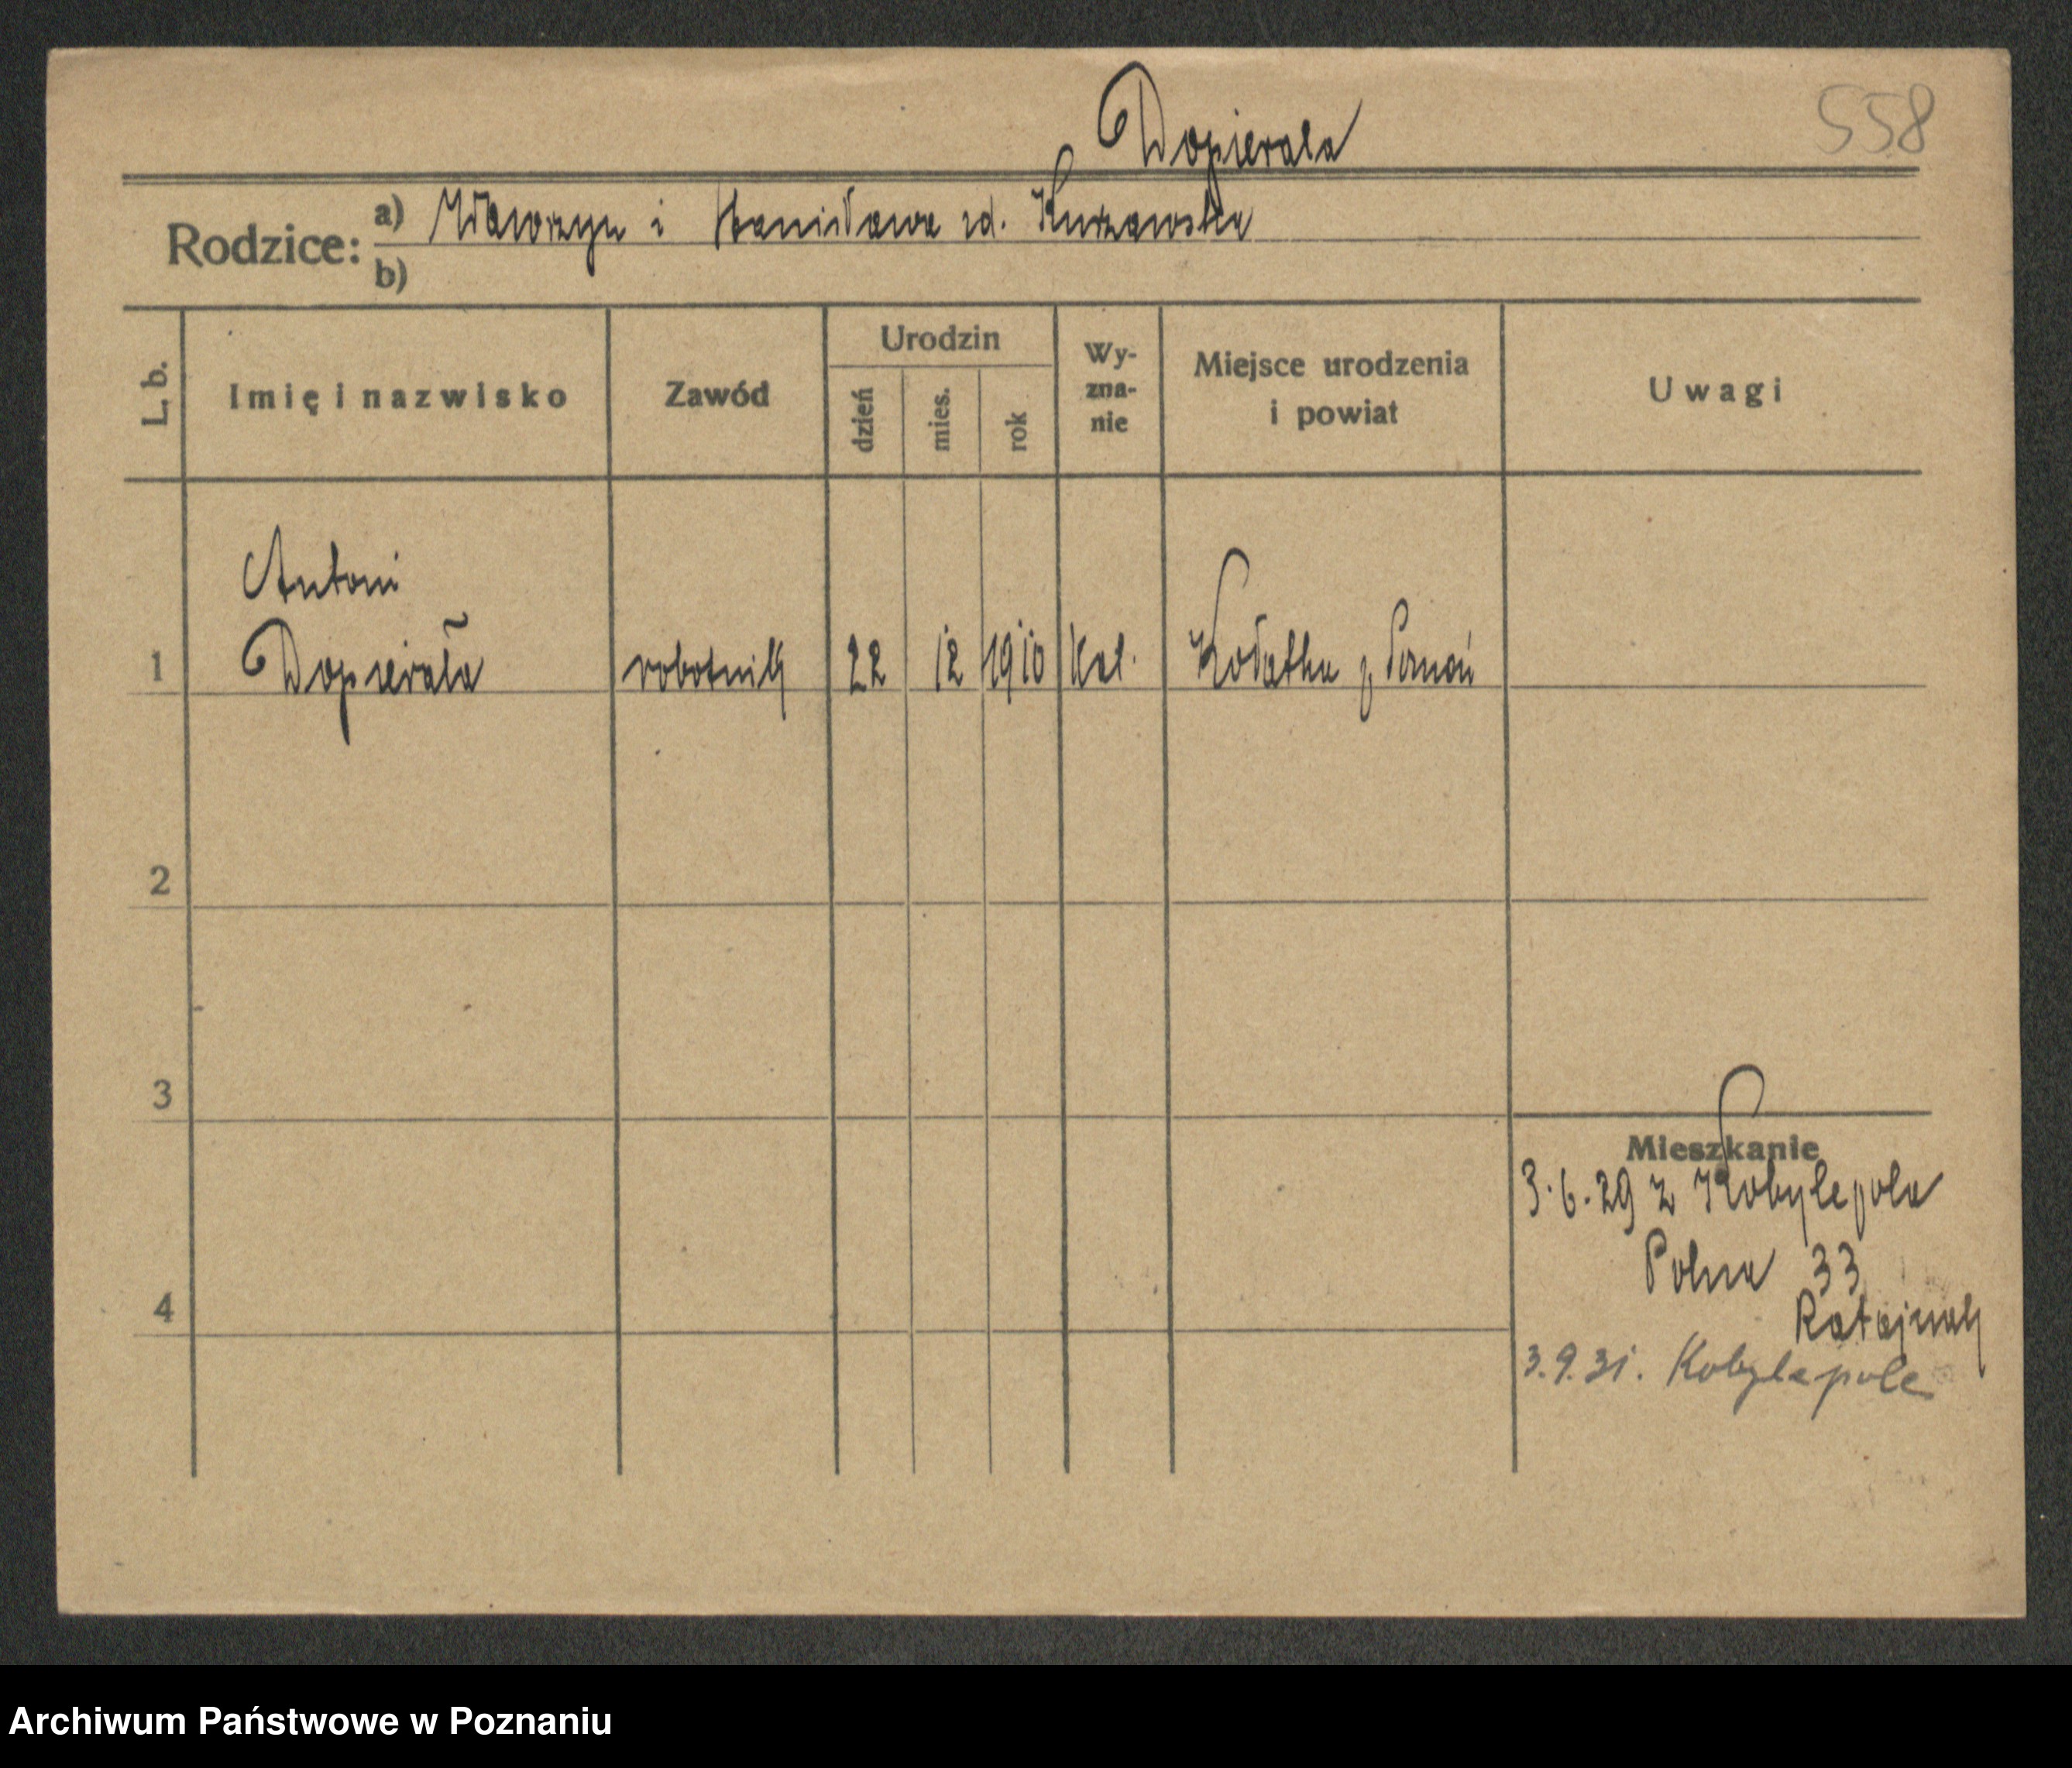 Dopierała
558
Rodzice: a) Wawrzyn i Stanisława zd. Kurzawska
b)
L. b.
Imię i nazwisko
Zawód
Urodzin
dzień
mies.
rok
Wy-
zna-
nie
Miejsce urodzenia
i powiat
Uwagi
Antoni
1 Dopierała robotnik 22 12 1910 kat. Kołatka p. Poznań
2
3
Mieszkanie
3.6.29 z Kobylepola
Polna 33
4
3.9.31. Kobylepole
Archiwum Państwowe w Poznaniu